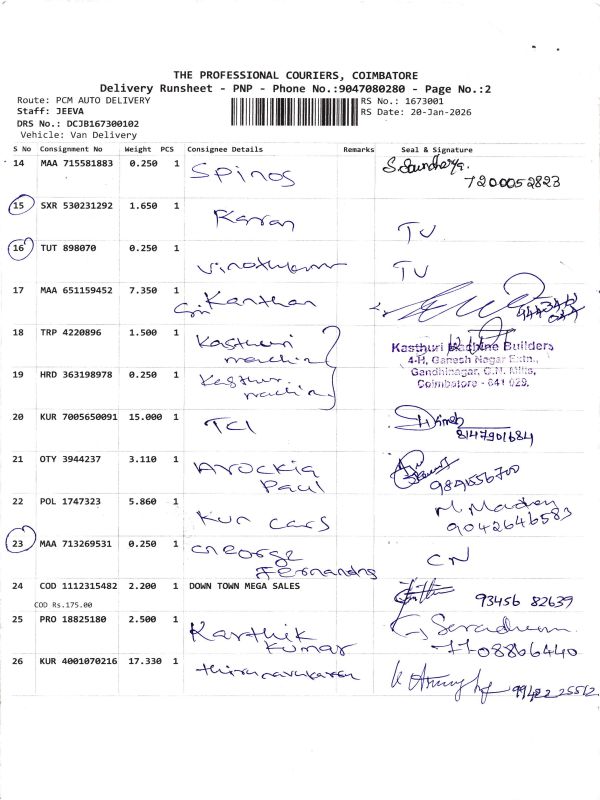 THE PROFESSIONAL COURIERS, COIMBATORE
Delivery Runsheet - PNP - Phone No.:9047080280 - Page No.:2
Route: PCM AUTO DELIVERY
Staff: JEEVA
DRS No.: DCJB167300102
Vehicle: Van Delivery
RS No.: 1673001
RS Date: 20-Jan-2026
S No Consignment No Weight PCS Consignee Details Remarks Seal & Signature
14 MAA 715581883 0.250 1 Spinos
7200052823
15 SXR 530231292 1.650 1 Karan TU
16 TUT 898070 0.250 1 TU
17 MAA 651159452 7.350 1 Sri Kanthan
18 TRP 4220896 1.500 1 Kasthuri machin
19 HRD 363198978 0.250 1 Kasthuri machin
Kasthuri Machine Builders
4-H, Ganesh Nagar Extn.,
Gandhinagar, G.N. Mills,
Coimbatore - 641 029.
20 KUR 7005650091 15.000 1 TCI
8147901684
21 OTY 3944237 3.110 1 Arockia Paul
9891556700
22 POL 1747323 5.860 1 Kun cars
9042646583
23 MAA 713269531 0.250 1 George Fernandas CN
24 COD 1112315482 2.200 1 DOWN TOWN MEGA SALES
COD Rs.175.00
93456 82639
25 PRO 18825180 2.500 1 Karthik Kumar
7708866440
26 KUR 4001070216 17.330 1 thirunavukaran